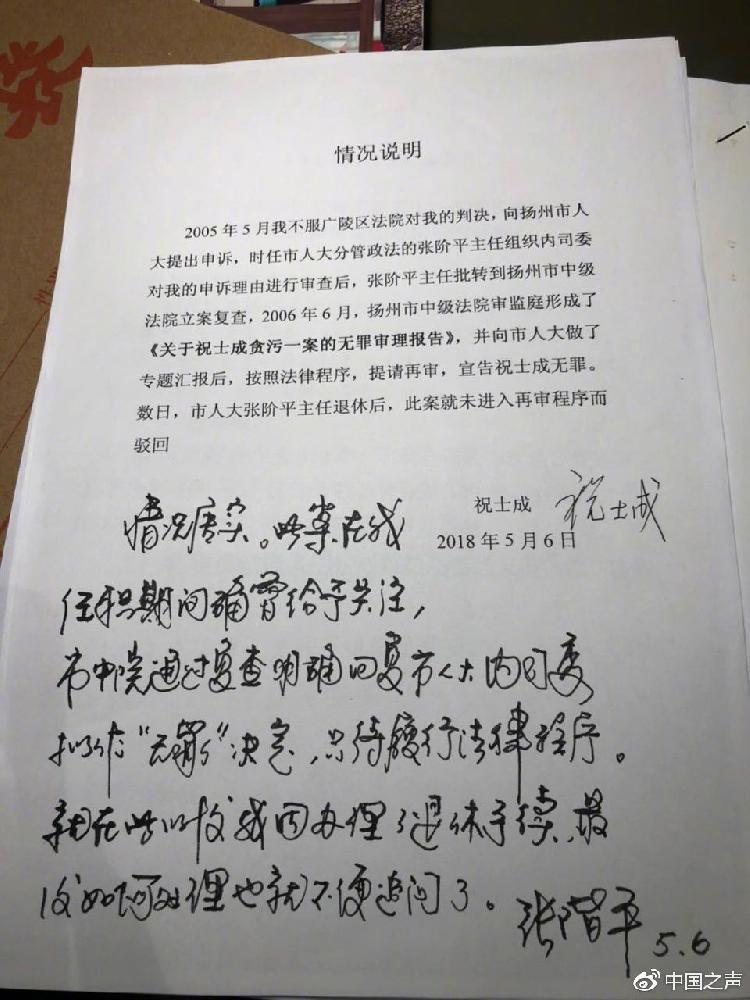 情况说明
2005年5月我不服广陵区法院对我的判决，向扬州市人
大提出申诉，时任市人大分管政法的张阶平主任组织内司委
对我的申诉理由进行审查后，张阶平主任批转到扬州市中级
法院立案复查，2006年6月，扬州市中级法院审监庭形成了
《关于祝士成贪污一案的无罪审理报告》，并向市人大做了
专题汇报后，按照法律程序，提请再审，宣告祝士成无罪。
数日，市人大张阶平主任退休后，此案就未进入再审程序而
驳回
祝士成 祝士成
2018年5月6日
情况属实。此案在我
任职期间确曾给予关注，
市中院通过复查明确回复市人大内司委
拟作“无罪”决定，只待履行法律程序。
就在此以后我因办理了退休手续，最
后如何处理也就不便追问了。
张阶平 5.6
中国之声